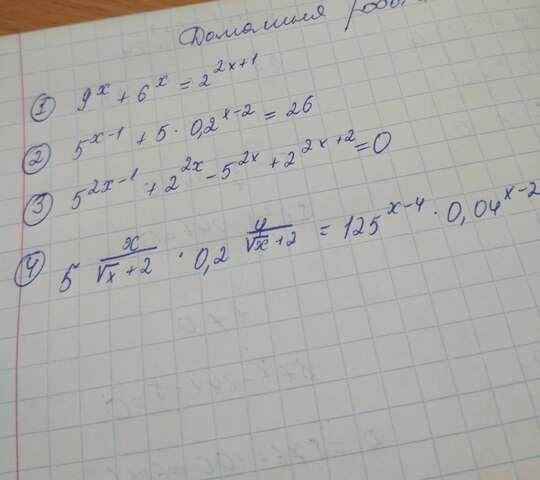 Домашня
① 9^x + 6^x = 2^{2x+1}
② 5^{x-1} + 5 · 0,2^{x-2} = 26
③ 5^{2x-1} + 2^{2x} - 5^{2x} + 2^{2x+2} = 0
④ 5^{\frac{x}{\sqrt{x}+2}} · 0,2^{\frac{4}{\sqrt{x}+2}} = 125^{x-4} · 0,04^{x-2}